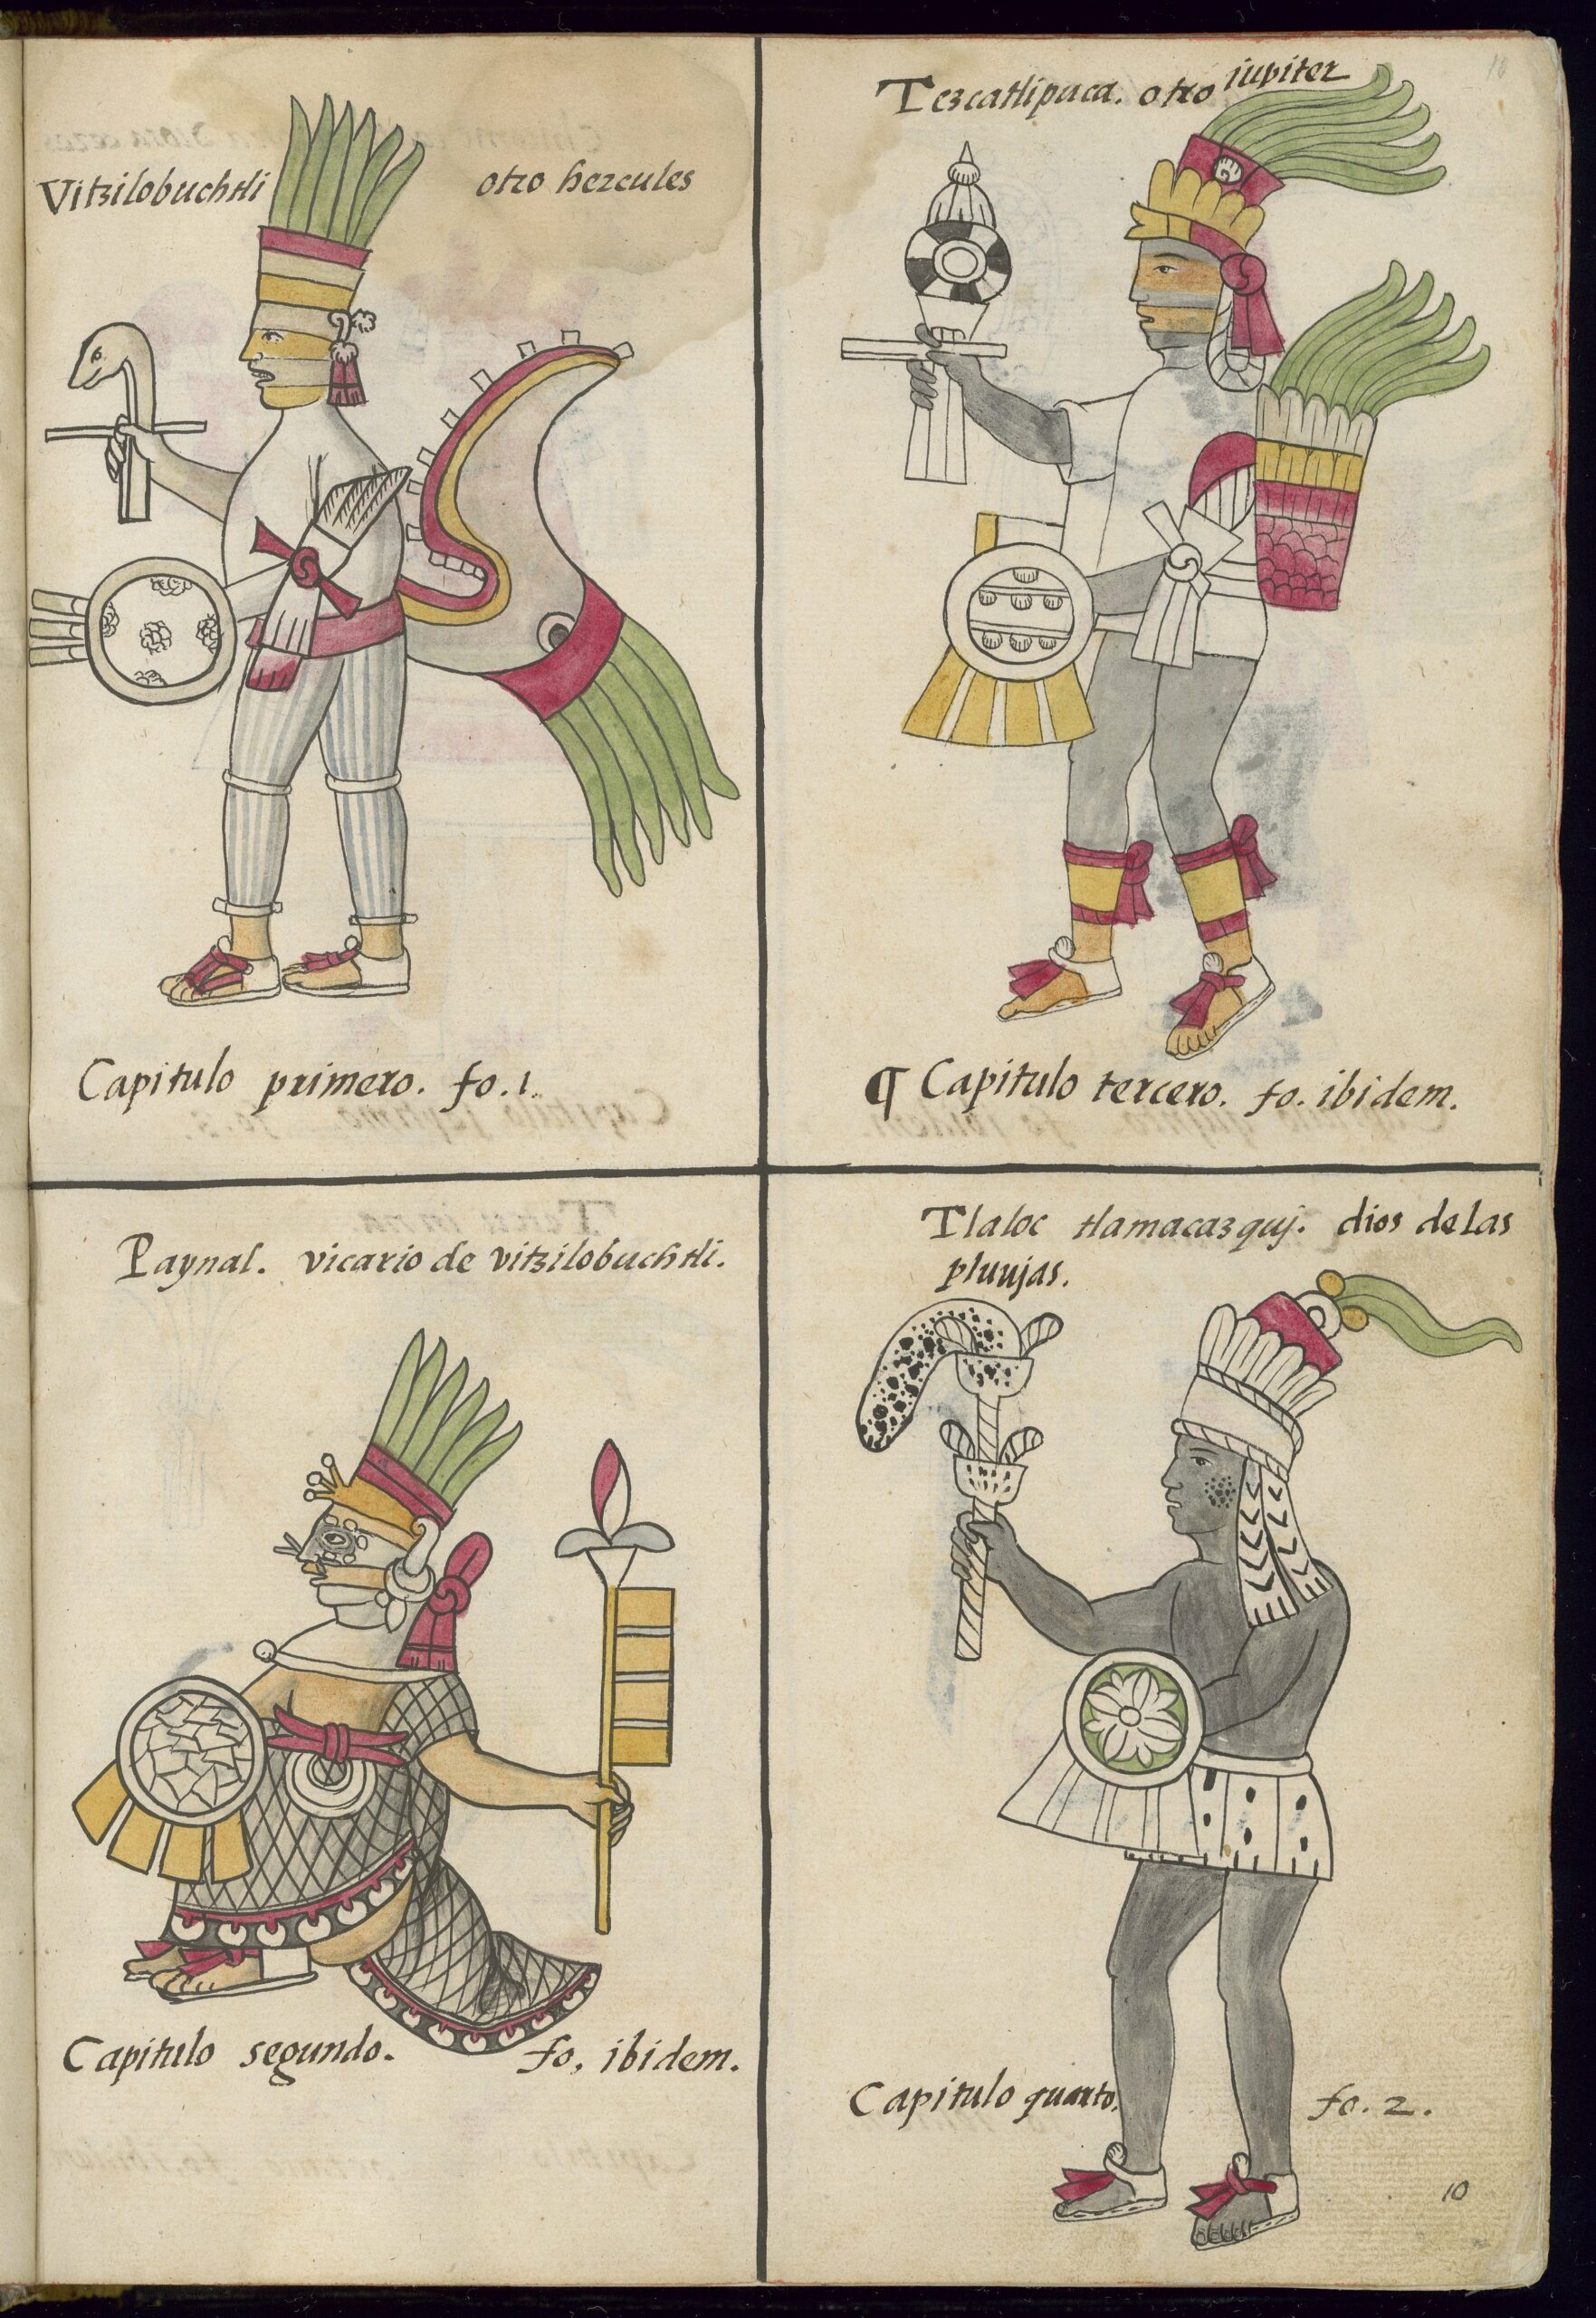 Vitzilobuchtli otro hercules
Capitulo primero. fo. 1.
Tezcatlipuca. otro iupiter
¶ Capitulo tercero. fo. ibidem.
Paynal. vicario de vitzilobuchtli.
Capitulo segundo. fo, ibidem.
Tlaloc tlamacazquj. dios de las
pluujas.
Capitulo quarto. fo. 2.
10